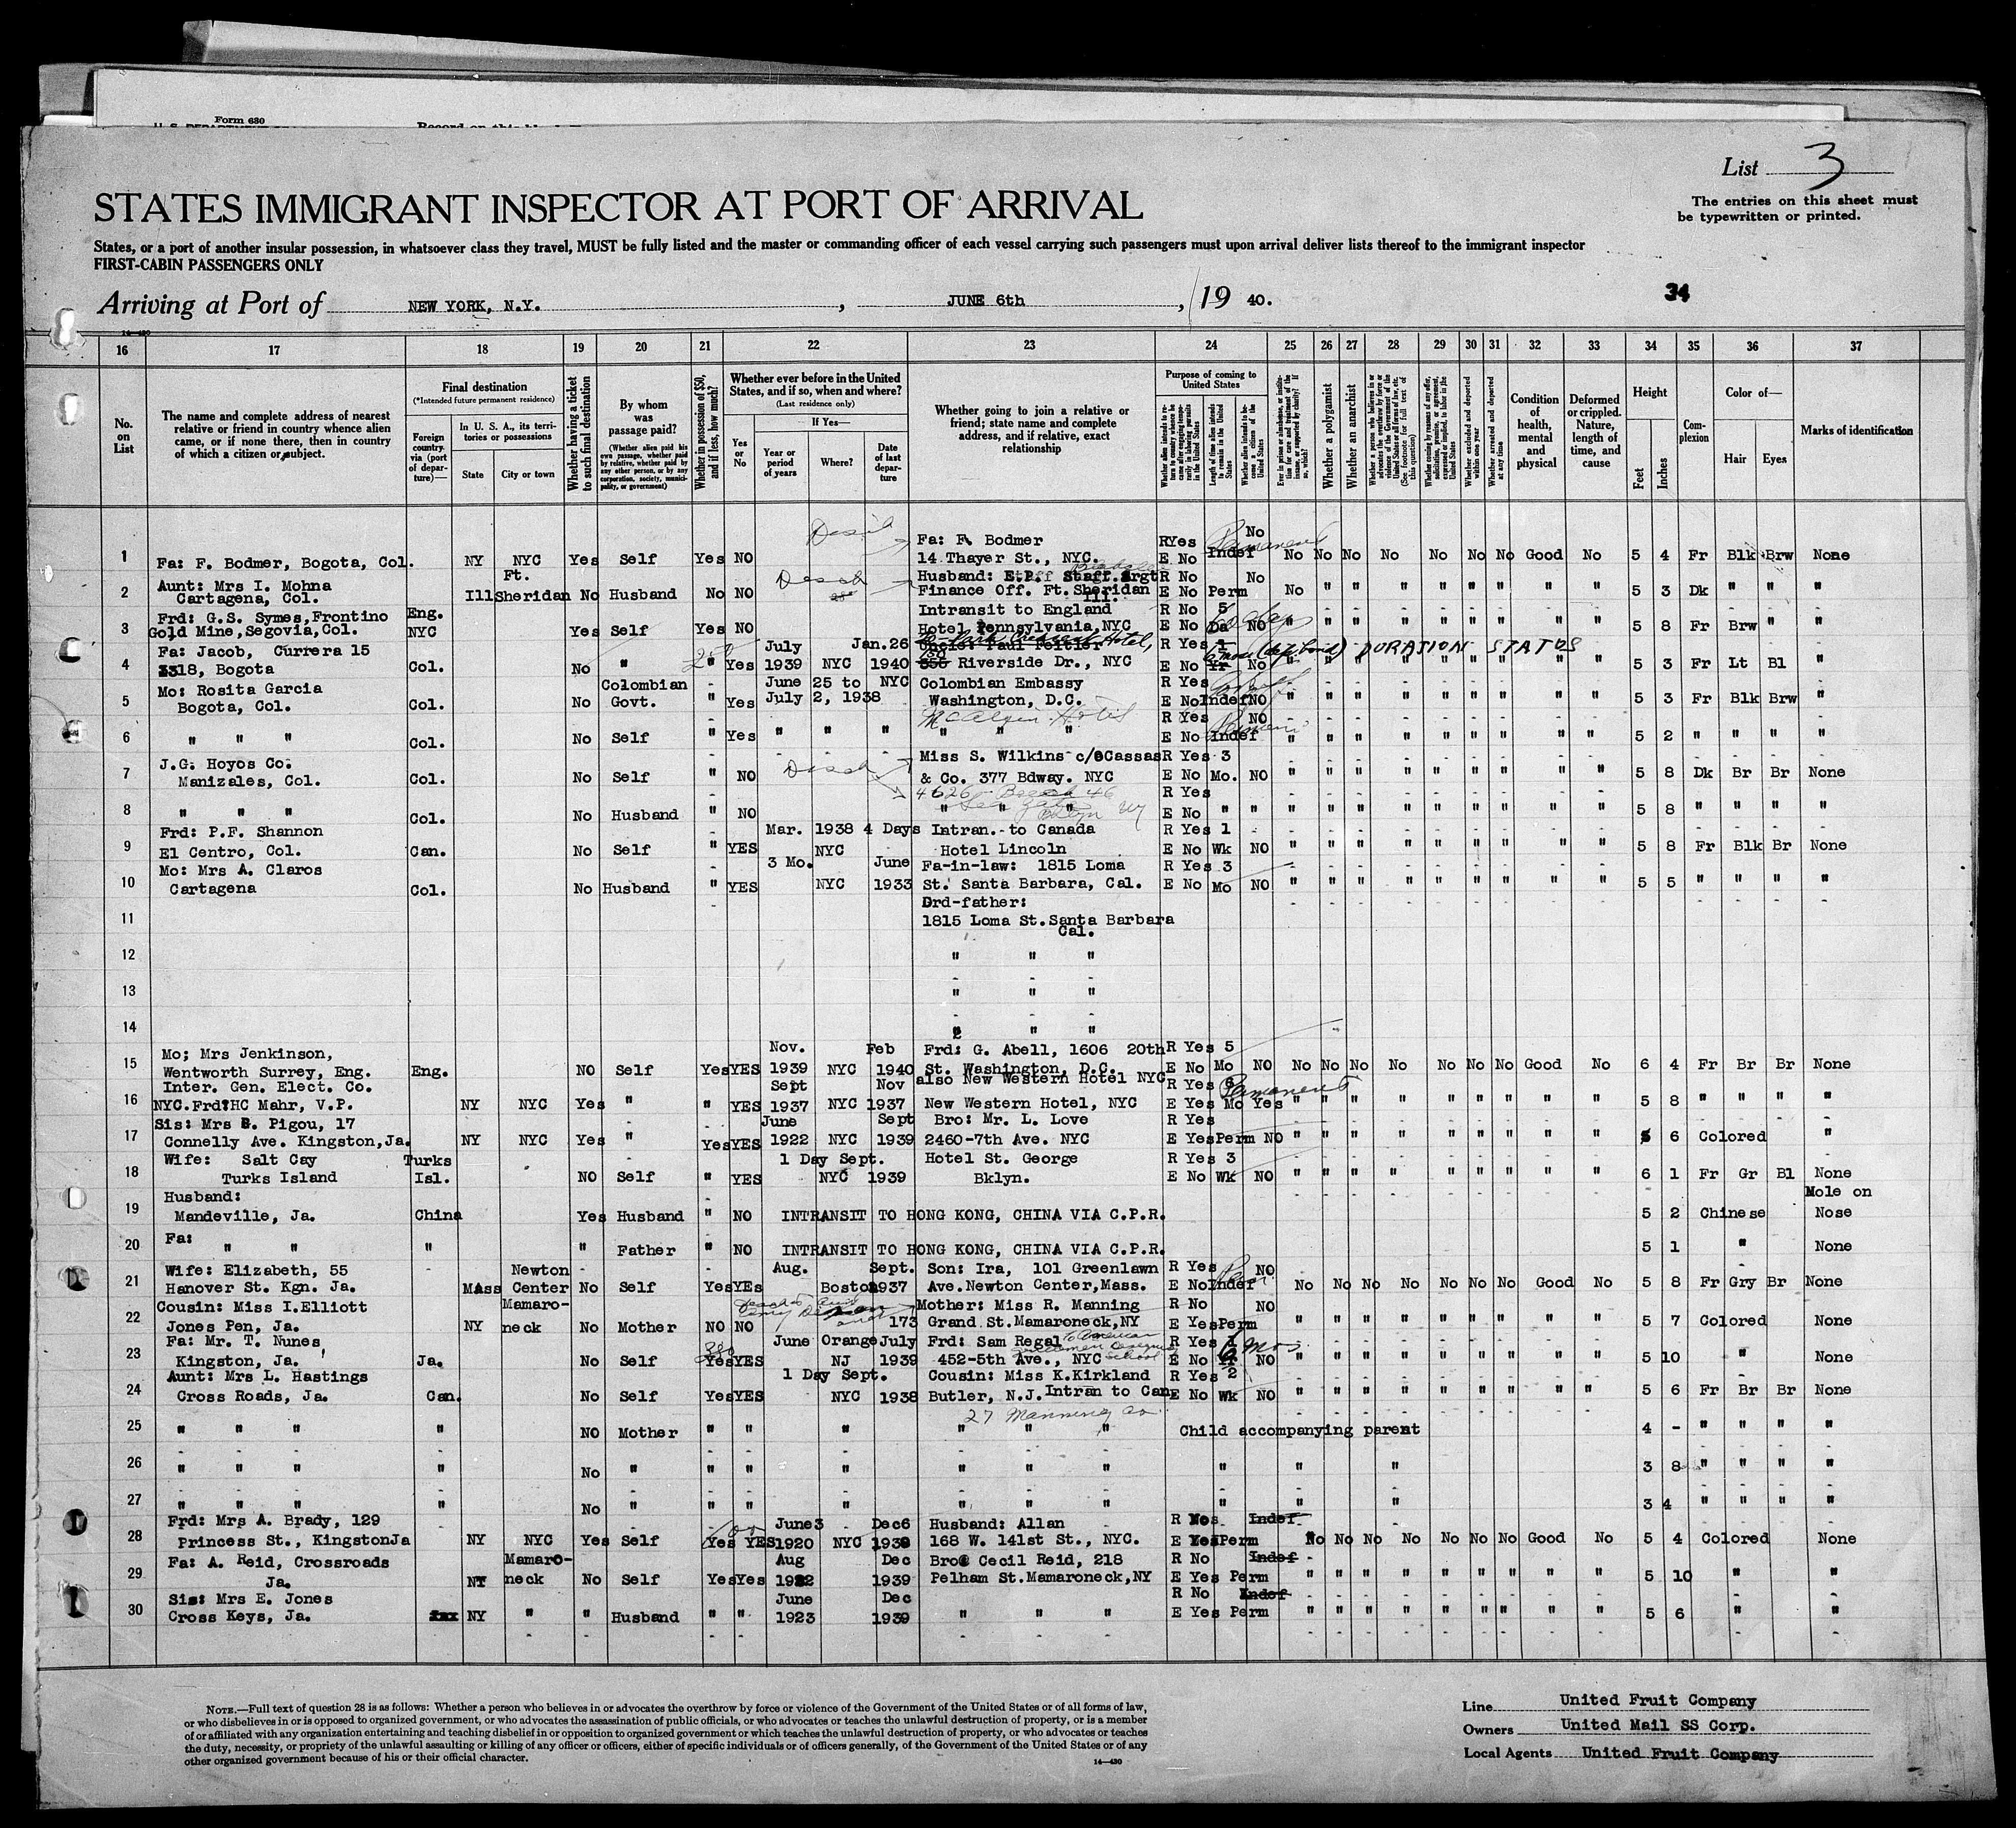 Form 630
List 3
STATES IMMIGRANT INSPECTOR AT PORT OF ARRIVAL
The entries on this sheet must
be typewritten or printed.
States, or a port of another insular possession, in whatsoever class they travel, MUST be fully listed and the master or commanding officer of each vessel carrying such passengers must upon arrival deliver lists thereof to the immigrant inspector
FIRST-CABIN PASSENGERS ONLY
Arriving at Port of NEW YORK, N.Y. , JUNE 6th , 19 40.
34
16 17 18 19 20 21 22 23 24 25 26 27 28 29 30 31 32 33 34 35 36 37
No. on List
The name and complete address of nearest relative or friend in country whence alien came, or if none there, then in country of which a citizen or subject.
Final destination
(*Intended future permanent residence)
Foreign country via (port of departure)—
In U. S. A., its territories or possessions
State
City or town
Whether having a ticket to such final destination
By whom was passage paid?
(Whether alien paid his own passage, whether paid by relative, whether paid by any other person, or by any corporation, society, municipality, or government)
Whether in possession of $50, and if less, how much?
Whether ever before in the United States, and if so, when and where?
(Last residence only)
Yes or No
If Yes—
Year or period of years
Where?
Date of last departure
Whether going to join a relative or friend; state name and complete address, and if relative, exact relationship
Purpose of coming to United States
Length of time alien intends to remain in the United States
Whether alien intends to become a citizen of the United States
Whether a polygamist
Whether an anarchist
Whether excluded and deported within one year
Whether arrested and deported at any time
Condition of health, mental and physical
Deformed or crippled. Nature, length of time, and cause
Height
Feet
Inches
Complexion
Color of—
Hair
Eyes
Marks of identification
Fa: F. Bodmer
No
1 Fa: F. Bodmer, Bogota, Col. NY NYC Yes Self Yes NO 14 Thayer St., NYC. R Yes E No Indef Permanent No No No No No No No Good No 5 4 Fr Blk Brw None
Aunt: Mrs I. Mohna Ft. Husband: Staff Srgt R No No
2 Cartagena, Col. Ill Sheridan No Husband No NO Finance Off. Ft. Sheridan Ill. E No Perm No " " " " " " " " 5 3 Dk " " "
Frd: G.S. Symes, Frontino Eng. Intransit to England R No 5
3 Gold Mine, Segovia, Col. NYC Yes Self Yes NO Hotel Pennsylvania, NYC E No Da NO " " " " " " " " " 5 8 Fr Brw " "
Fa: Jacob, Currera 15 July Jan. 26 Uncle: Paul Peitler R Yes 6 mos DURATION STATUS
4 18, Bogota Col. No " " Yes 1939 NYC 1940 Riverside Dr., NYC E No Yr No 5 3 Fr Lt Bl "
Mo: Rosita Garcia Colombian June 25 to NYC Colombian Embassy R Yes
5 Bogota, Col. Col. No Govt. " Yes July 2, 1938 Washington, D.C. E No Indef NO " " " " " " " " " 5 3 Fr Blk Brw "
McAlpin Hotel R Yes NO
6 " " " Col. No Self " Yes " " " " " " E No Indef " " " " " " " " " 5 2 " " " "
J.G. Hoyos Co. Miss S. Wilkins c/o Cassas R Yes 3
7 Manizales, Col. Col. No Self " NO & Co. 377 Bdway. NYC E No Mo. NO " " " " " " " " " 5 8 Dk Br Br None
4626 Beach 46 R Yes
8 " " " Col. No Husband " NO " " " E No " " " " " " " " " " " 5 8 " " " "
Frd: P.F. Shannon Mar. 1938 4 Days Intran. to Canada R Yes 1
9 El Centro, Col. Can. No Self " YES NYC Hotel Lincoln E No Wk NO " " " " " " " " " 5 8 Fr Blk Br None
Mo: Mrs A. Claros 3 Mo. June Fa-in-law: 1815 Loma R Yes 3
10 Cartagena Col. No Husband " YES NYC 1933 St. Santa Barbara, Cal. E No Mo NO " " " " " " " " " 5 5 " " " "
Grd-father:
11 1815 Loma St. Santa Barbara Cal.
12 " " "
13 " " "
14 " " "
Mo; Mrs Jenkinson, Nov. Feb Frd: G. Abell, 1606 20th R Yes 5
15 Wentworth Surrey, Eng. Eng. NO Self Yes YES 1939 NYC 1940 St. Washington, D.C. E No Mo NO No No No No No No No Good No 6 4 Fr Br Br None
Inter. Gen. Elect. Co. Sept Nov also New Western Hotel NYC R Yes 6 Permanent
16 NYC. Frd: HC Mahr, V.P. NY NYC Yes " " YES 1937 NYC 1937 New Western Hotel, NYC E Yes Mo Yes " " " " " " " " " 5 8 " " " "
Sis: Mrs B. Pigou, 17 June Sept Bro: Mr. L. Love R Yes
17 Connelly Ave. Kingston, Ja. NY NYC Yes " Yes YES 1922 NYC 1939 2460-7th Ave. NYC E Yes Perm NO " " " " " " " " " 5 6 Colored "
Wife: Salt Cay Turks 1 Day Sept. Hotel St. George R Yes 3
18 Turks Island Isl. NO Self " YES NYC 1939 Bklyn. E No Wk NO " " " " " " " " " 6 1 Fr Gr Bl None
Husband: Mole on
19 Mandeville, Ja. China Yes Husband " NO INTRANSIT TO HONG KONG, CHINA VIA C.P.R. 5 2 Chinese Nose
Fa:
20 " " " " Father " NO INTRANSIT TO HONG KONG, CHINA VIA C.P.R. 5 1 " None
Wife: Elizabeth, 55 Newton Aug. Sept. Son: Ira, 101 Greenlawn R Yes NO
21 Hanover St. Kgn. Ja. MAss Center No Self Yes YEs Boston 1937 Ave. Newton Center, Mass. E No Indef No No No No No No No Good No 5 8 Fr Gry Br None
Cousin: Miss I. Elliott Mamaro- Mother: Miss R. Manning R No NO
22 Jones Pen, Ja. NY neck No Mother NO NO 173 Grand St. Mamaroneck, NY E Yes Perm " " " " " " " " " 5 7 Colored None
Fa: Mr. T. Nunes June Orange July Frd: Sam Regal R Yes 1 6 mos
23 Kingston, Ja. Ja. No Self 380 Yes YES NJ 1939 452-5th Ave., NYC school E No Yr NO " " " " " " " " " 5 10 " None
Aunt: Mrs L. Hastings 1 Day Sept. Cousin: Miss K. Kirkland R Yes 2
24 Cross Roads, Ja. Can. No Self Yes YES NYC 1938 Butler, N.J. Intran to Can. E No Wk NO " " " " " " " " " 5 6 Fr Br Br None
27 Manning av
25 " " " " NO Mother " " " " " " Child accompanying parent 4 - " " " "
26 " " " " No " " " " " " " " " " 3 8 " " " "
27 " " " " No " " " " " " " " " " 3 4 " " " "
Frd: Mrs A. Brady, 129 June 3 Dec 6 Husband: Allan R Indef
28 Princess St., Kingston Ja NY NYC Yes Self 100 Yes YES 1920 NYC 1939 168 W. 141st St., NYC. E Yes Perm No No No No No No No Good No 5 4 Colored None
Fa: A. Reid, Crossroads Mamaro- Aug Dec Bro: Cecil Reid, 218 R No Indef
29 Ja. NY neck No Self Yes Yes 1922 1939 Pelham St. Mamaroneck, NY E Yes Perm " " " " " " " " " 5 10 " "
Sis: Mrs E. Jones June Dec R No Indef
30 Cross Keys, Ja. NY " " Husband " " 1923 1939 " " " E Yes Perm " " " " " " " " " 5 6 " "
NOTE.—Full text of question 28 is as follows: Whether a person who believes in or advocates the overthrow by force or violence of the Government of the United States or of all forms of law,
or who disbelieves in or is opposed to organized government, or who advocates the assassination of public officials, or who advocates or teaches the unlawful destruction of property, or is a member
of or affiliated with any organization entertaining and teaching disbelief in or opposition to organized government or which teaches the unlawful destruction of property, or who advocates or teaches
the duty, necessity, or propriety of the unlawful assaulting or killing of any officer or officers, either of specific individuals or of officers generally, of the Government of the United States or of any
other organized government because of his or their official character.
14—430
Line United Fruit Company
Owners United Mail SS Corp.
Local Agents United Fruit Company